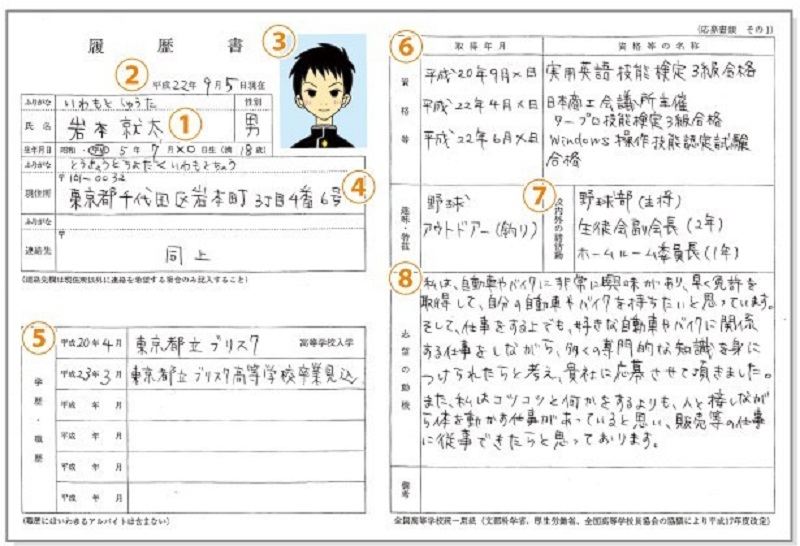 履 歴 書
③
②
平成22年 9月 5日現在
ふりがな いわもと しゅうた 性別
氏 名 岩本 就太 ① 男
生年月日 昭和・平成 5年 7月×○日生(満 18歳)
ふりがな とうきょうとちよだくいわもとちょう
〒101-0032
現住所 東京都千代田区岩本町3丁目4番6号 ④
ふりがな
〒
連絡先 同上
(連絡先欄は現住所以外に連絡を希望する場合のみ記入すること)
⑤
学歴・職歴
平成20年4月 東京都立ブリスク 高等学校入学
平成23年3月 東京都立ブリスク高等学校卒業見込
平成 年 月
平成 年 月
平成 年 月
平成 年 月
(職歴にはいわゆるアルバイトは含まない)
(応募書類 その1)
⑥
取得年月 資格等の名称
資格等
平成20年9月×日 実用英語技能検定3級合格
平成22年4月×日 日本商工会議所主催
タープロ技能検定3級合格
平成22年6月×日 Windows操作技能認定試験
合格
趣味・特技
野球
アウトドアー(釣り)
⑦
校内外の諸活動
野球部(主将)
生徒会副会長(2年)
ホームルーム委員長(1年)
⑧
志望の動機
私は、自動車やバイクに非常に興味があり、早く免許を
取得して、自分の自動車やバイクを持ちたいと思っています。
そして、仕事をする上でも、好きな自動車やバイクに関係
する仕事をしながら、多くの専門的な知識を身に
つけられたらと考え、貴社に応募させて頂きました。
また、私はコツコツと何かをするよりも、人と接しなが
ら体を動かす仕事があっていると思い、販売等の仕事
に従事できたらと思っております。
備考
全国高等学校統一用紙(文部科学省、厚生労働省、全国高等学校長協会の協議により平成17年度改定)